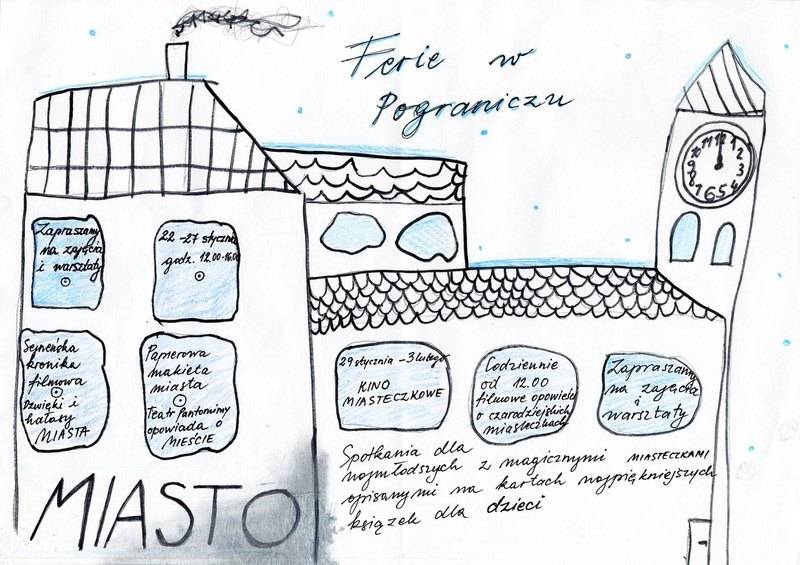 Ferie w
Pograniczu
Zapraszamy
na zajęcia
i warsztaty
22 - 27 stycznia
godz. 12.00-16.00
Sejneńska
kronika
filmowa
Dźwięki i
hałasy
MIASTA
Papierowa
makieta
miasta
Teatr Pantomimy
opowiada o
MIEŚCIE
MIASTO
29 stycznia - 3 lutego
KINO
MIASTECZKOWE
Codziennie
od 12.00
filmowe opowieści
o czarodziejskich
miasteczkach
Zapraszamy
na zajęcia
i
warsztaty
Spotkania dla
najmłodszych z magicznymi MIASTECZKAMI
opisanymi na kartach najpiękniejszych
książek dla dzieci
12
1
2
3
4
5
6
7
8
9
10
11